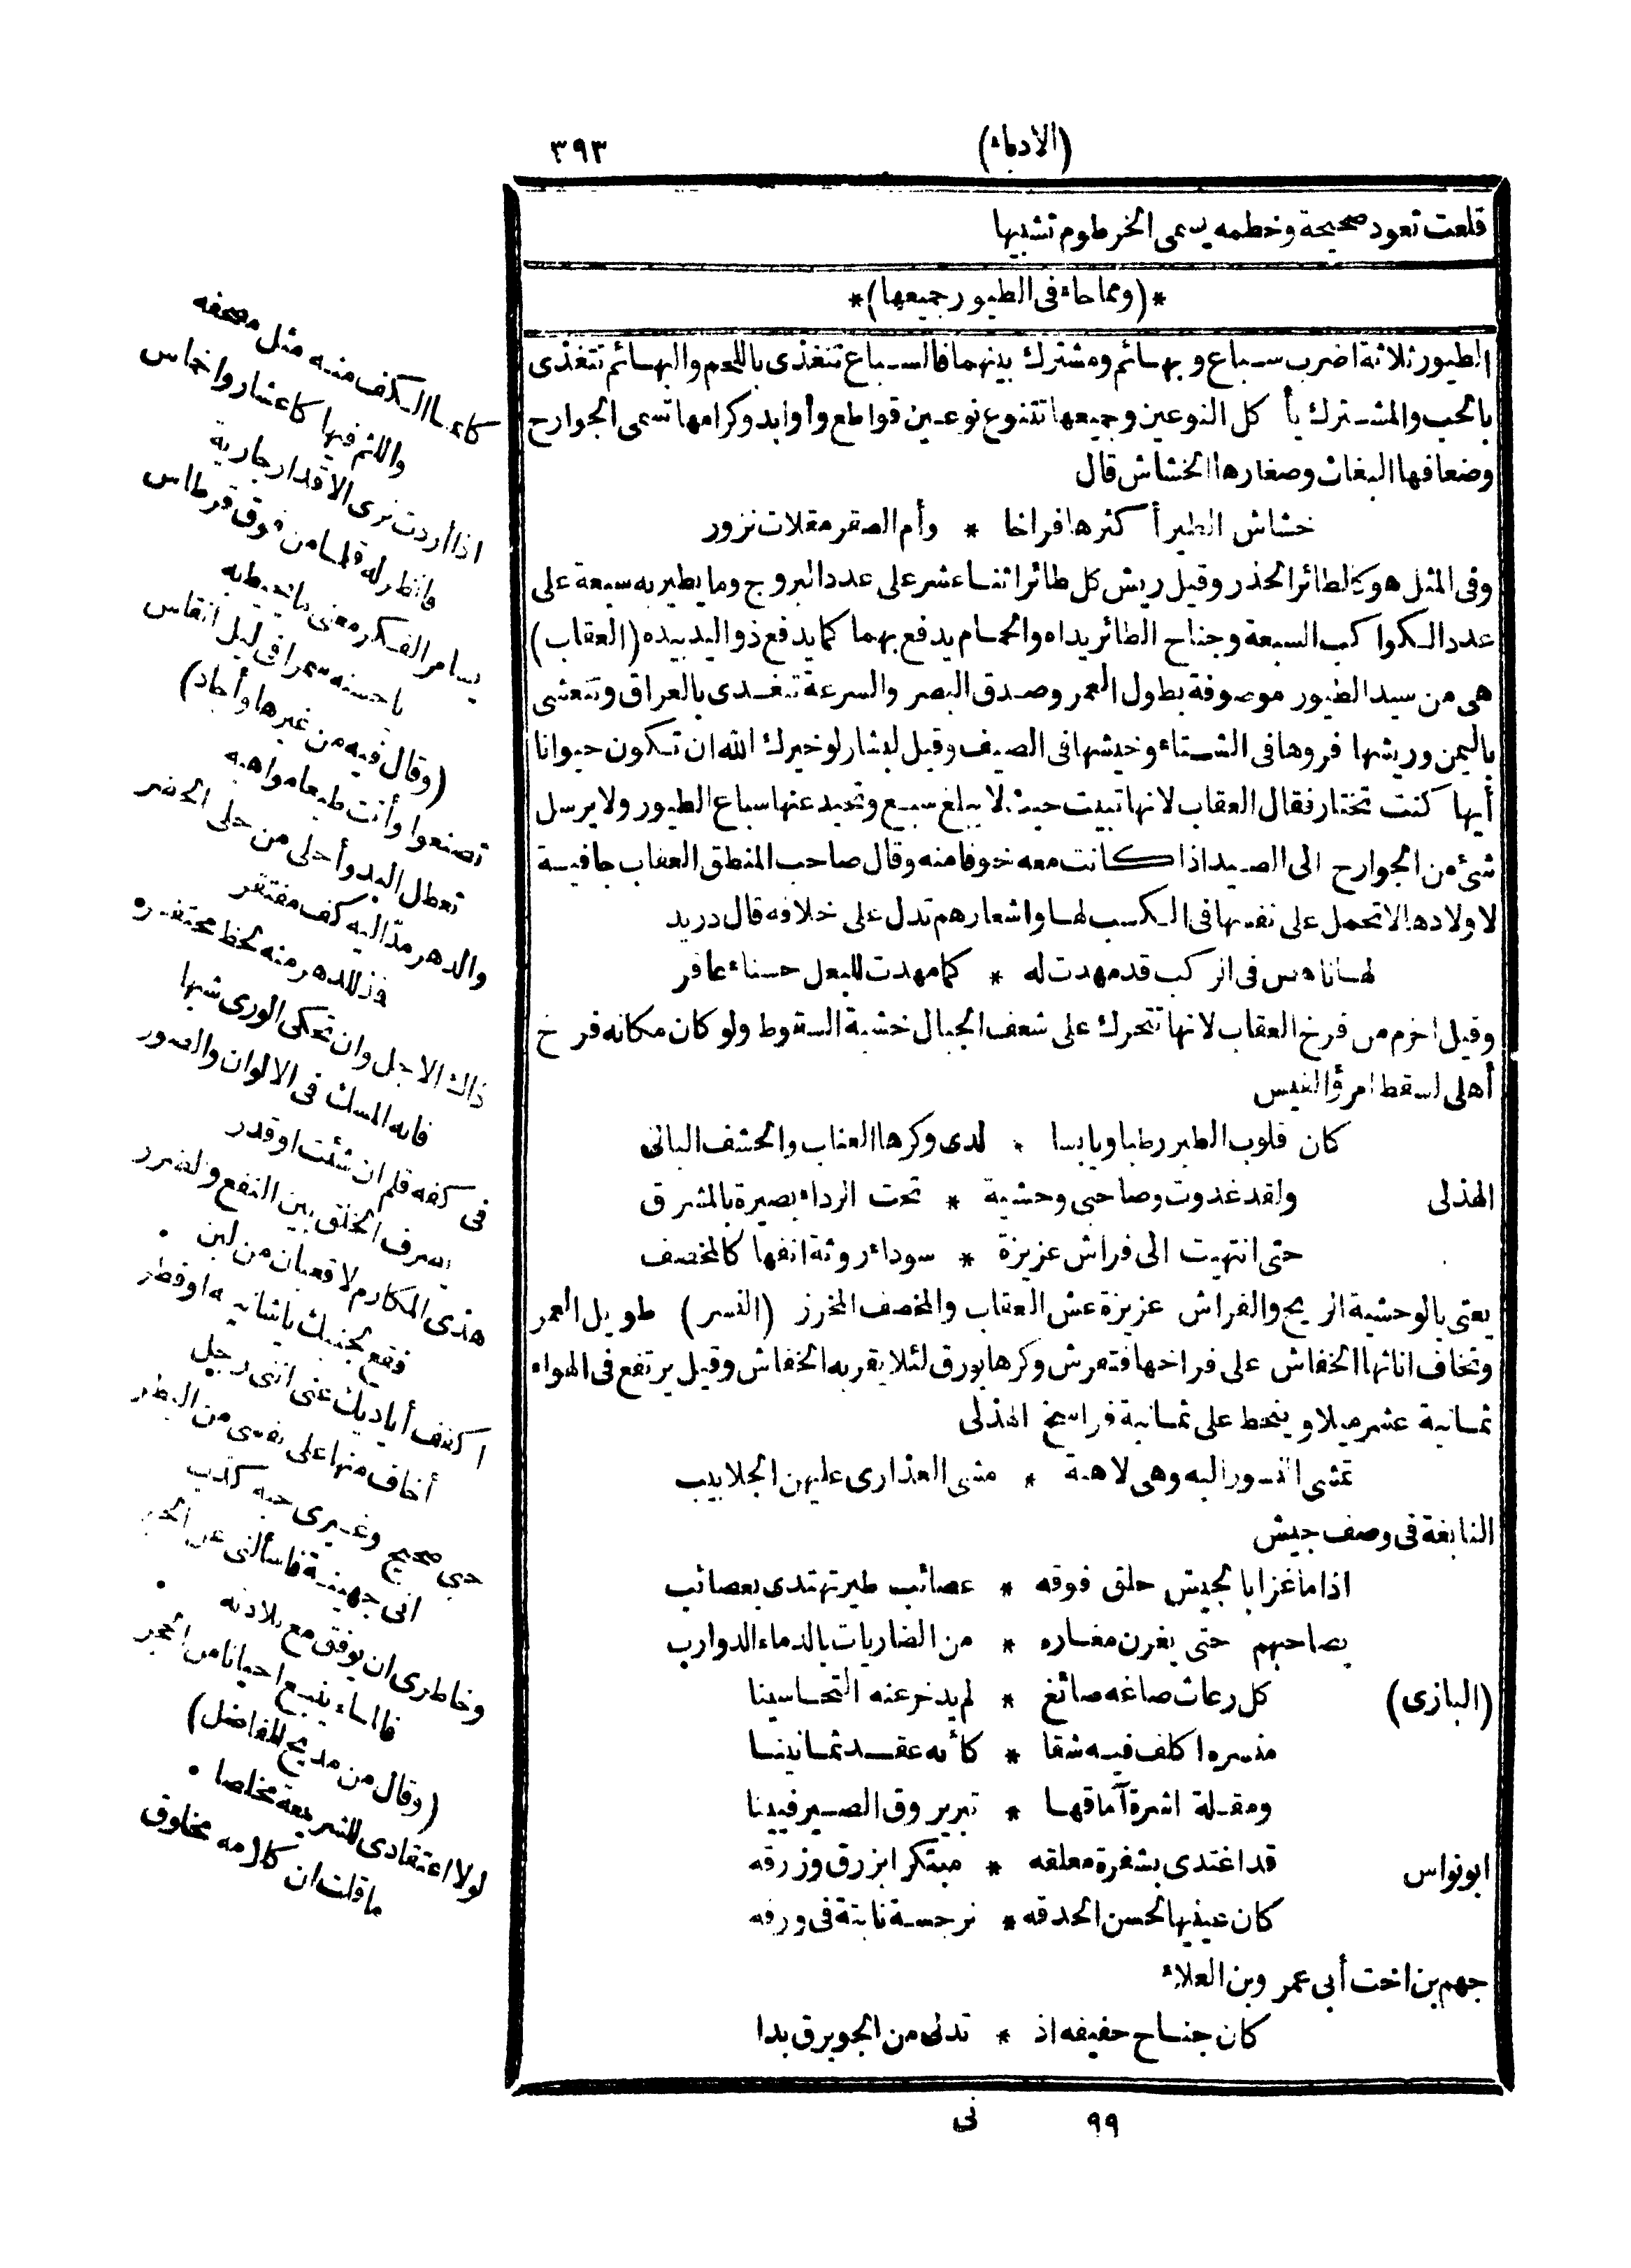 (الادباء)
٣٩٣
قلعت تعود صحيحة وخطمه يسمى الخرطوم تشبيها
*(ومما جاء فى الطيور جميعها)*
الطيور ثلاثة اضرب سباع وبهائم ومشترك بينهما فالسباع تتغذى باللحم والبهائم تتغذى
بالحب والمشترك يأكل النوعين وجميعها تتنوع نوعين قواطع وأوابد وكرامها تسمى الجوارح
وضعافها البغاث وصغارها الخشاش قال
خشاش الطير أكثرها فراخا * وأم الصقر مقلات نزور
وفى المثل هو كالطائر الحذر وقيل ريش كل طائر اثنا عشر على عدد البروج وما يطير به سبعة على
عدد الكواكب السبعة وجناح الطائر يداه والحمام يدفع بهما كما يدفع ذو اليد بيده (العقاب)
هى من سيد الطيور موصوفة بطول العمر وصدق البصر والسرعة تتغدى بالعراق وتتعشى
باليمن وريشها فروها فى الشتاء وخيشها فى الصيف وقيل لبشار لو خيرك الله ان تكون حيوانا
أيها كنت تختار فقال العقاب لانها تبيت حيث لا يبلغ سبع وتحيد عنها سباع الطيور ولا يرسل
شئ من الجوارح الى الصيد اذا كانت معه خوفا منه وقال صاحب المنطق العقاب جافية
لاولادها لا تحمل على نفسها فى الكسب لها واشعارهم تدل على خلافه قال دريد
لها ناهس فى الركب قد مهدت له * كما مهدت للبعل حسناء عاقر
وقيل احزم من فرخ العقاب لانها تتحرك على شعف الجبال خشية السقوط ولو كان مكانه فرخ
أهلى لسقط امرؤ القيس
كان قلوب الطير رطبا ويابسا * لدى وكرها العناب والحشف البالى
الهذلى
ولقد غدوت وصاحبى وحشية * تحت الرداء بصيرة بالمشرق
حتى انتهيت الى فراش عزيزة * سوداء روثة انفها كالمخصف
يعنى بالوحشية الريح والفراش عزيزة عش العقاب والمخصف المخرز (النسر) طويل العمر
وتخاف اناثها الخفاش على فراخها فتفرش وكرها بورق لئلا يقربه الخفاش وقيل يرتفع فى الهواء
ثمانية عشر ميلا وينحط على ثمانية فراسخ الهذلى
تمشى النسور اليه وهى لاهية * مشى العذارى عليهن الجلابيب
النابغة فى وصف جيش
اذا ما غزا بالجيش حلق فوقه * عصائب طير تهتدى بعصائب
يصاحبهم حتى يغرن مغاره * من الضاريات بالدماء الدوارب
(البازى)
كل رعاث صاغه صائغ * لم يدخر عنه التحاسينا
منسره اكلف فيه شقا * كأنه عقد ثمانينا
ومقلة اشرة آماقها * تبريروق الصيرفيينا
ابو نواس
قد اغتدى بشفرة معلقه * مبتكرا بزرق وزرقه
كان عينيها لحسن الحدقه * نرجسة نابتة فى ورقه
جهم بن اخت أبى عمرو بن العلاء
كان جناح حفيفه اذ * تدلى من الجو برق بدا
٩٩ نى
كانما الكف منه مثل مصحفه
واللثم فيها كاعشار واخماس
اذا أردت نرى الاقدار جارية
فانظر له قلما من فوق قرطاس
يسامر الفكر معنى ما يحيط به
ياحسنه سمرا فى ليل انقاس
(وقال فيه من غيرها وأجاد)
تصنعوا وأنت طبعا مواهبه
تعطل البدو أحلى من حلى الحضر
والدهر مد اليه كف مفتقر
فذ للدهر منه لحظ محتقر
ذاك الاجل وان تحكى الورى شبها
فانه المسك فى الالوان والصور
فى كفه قلم ان شئت او قدر
يصرف الخلق بين النفع والضرر
هذى المكارم لا قعبان من لبن
فقع لجنبك ياشانيه او فطر
اكفف أياديك عنى اننى رجل
أخاف منها على نفسى من البطر
حبى صحيح وغيرى حبه كذب
انى جهينة فاسألنى عن الخبر
وخاطرى ان يوفق مع بلادته
فالماء ينبع احيانا من الحجر
(وقال من مديح للفاضل)
لولا اعتقادى للشريعة مخلصا
ما قلت ان كلامه مخلوق